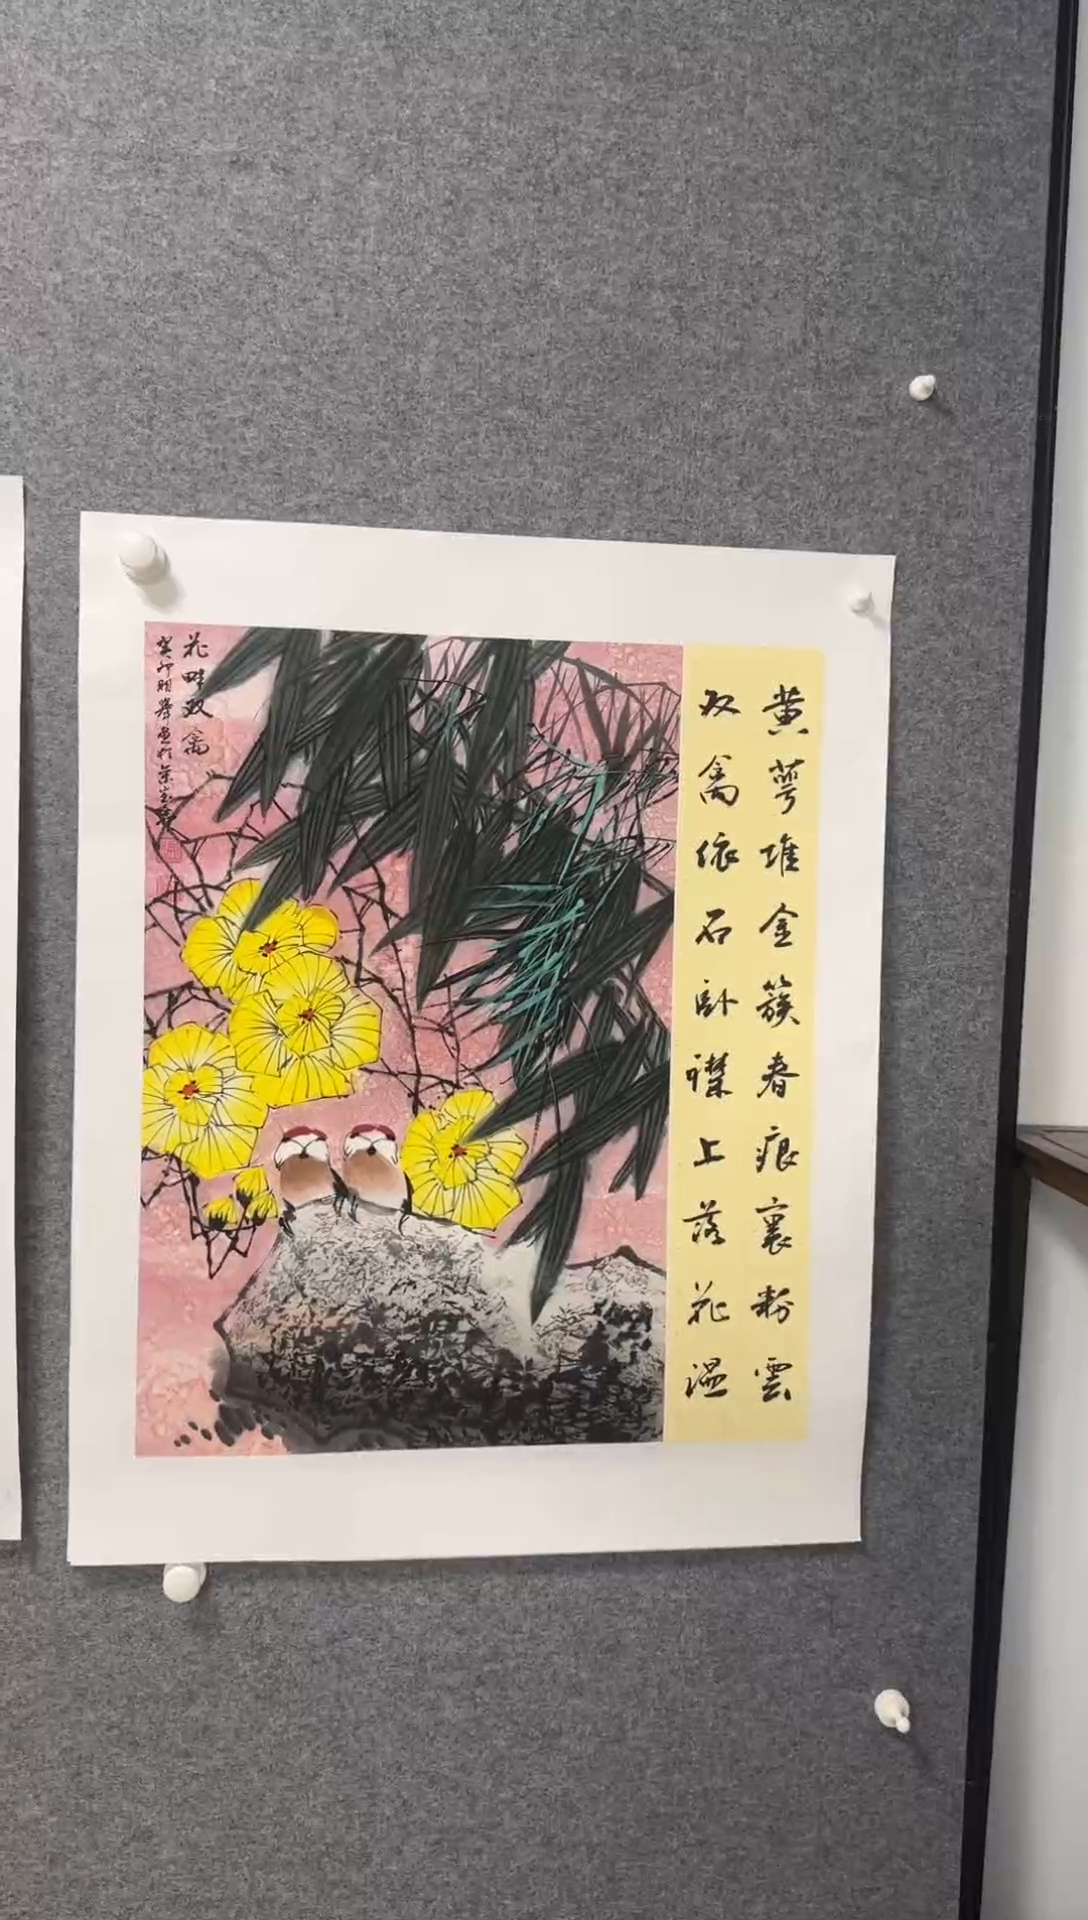 黄萼堆金簇春痕裏粉雲
双禽依石卧襟上落花温
花畔双禽
癸卯明